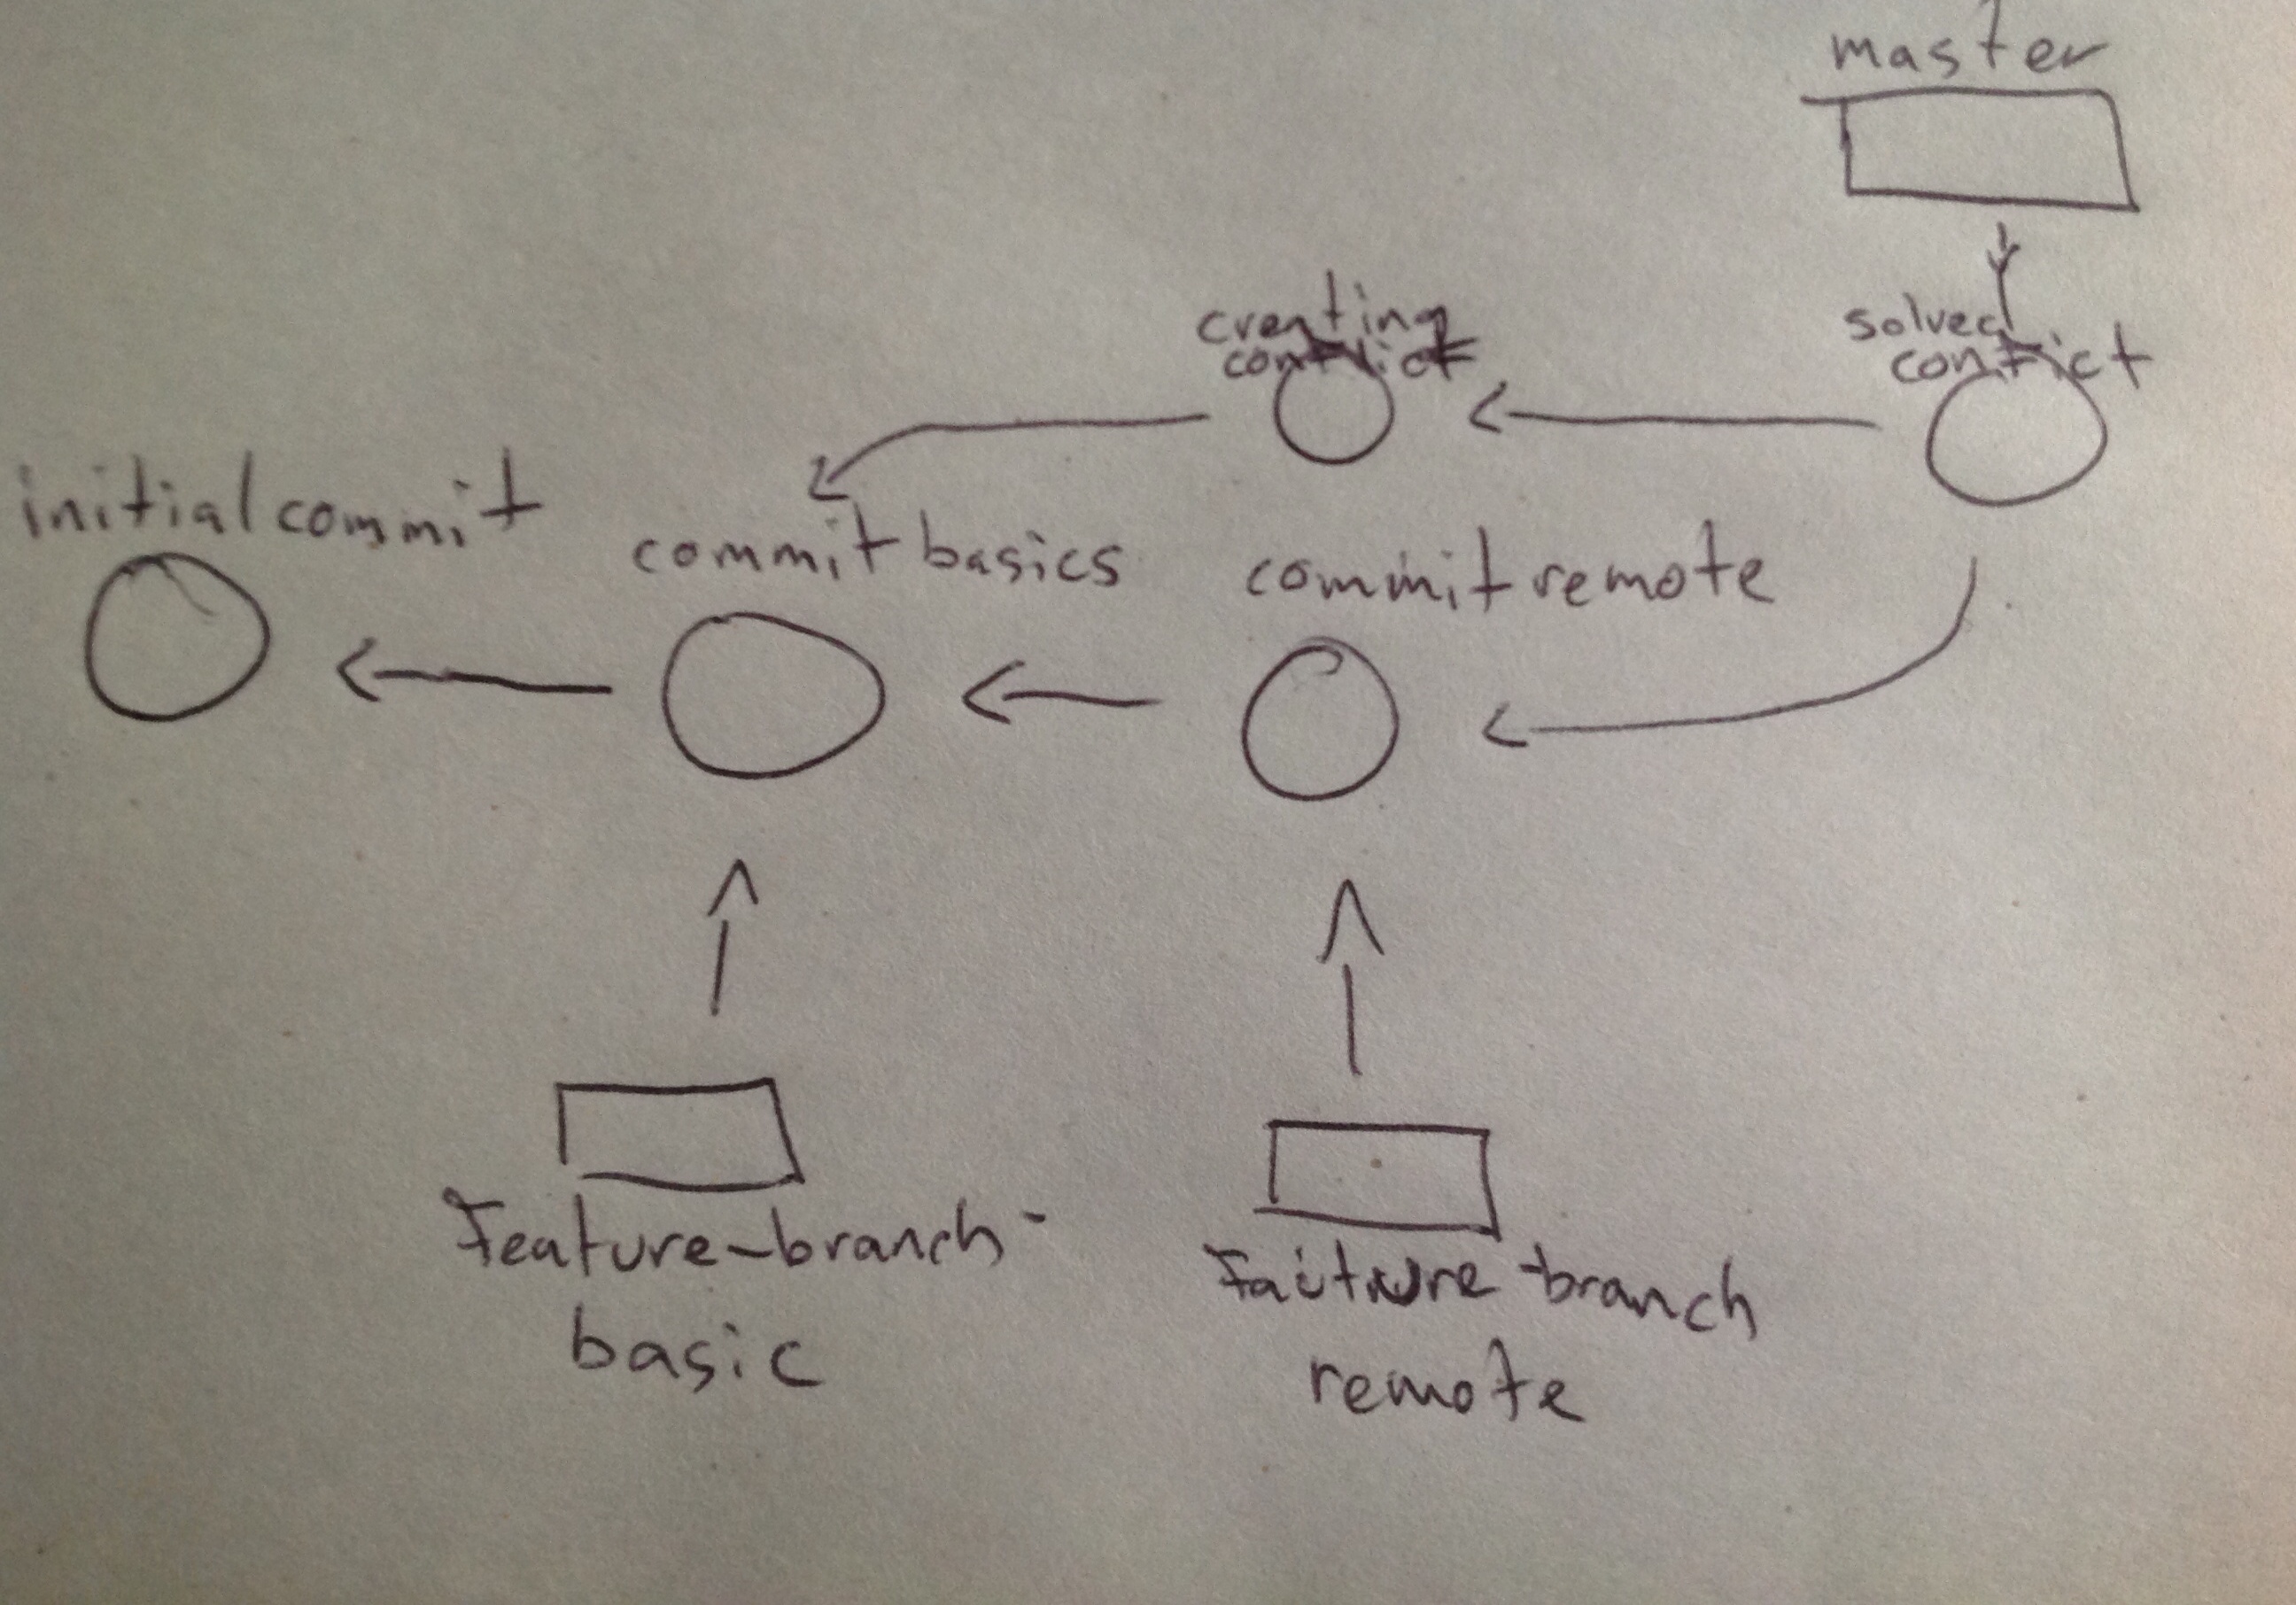 master
creating
conflict
solved
conflict
initial commit
commit basics
commit remote
Feature-branch-
basic
-branch
remote